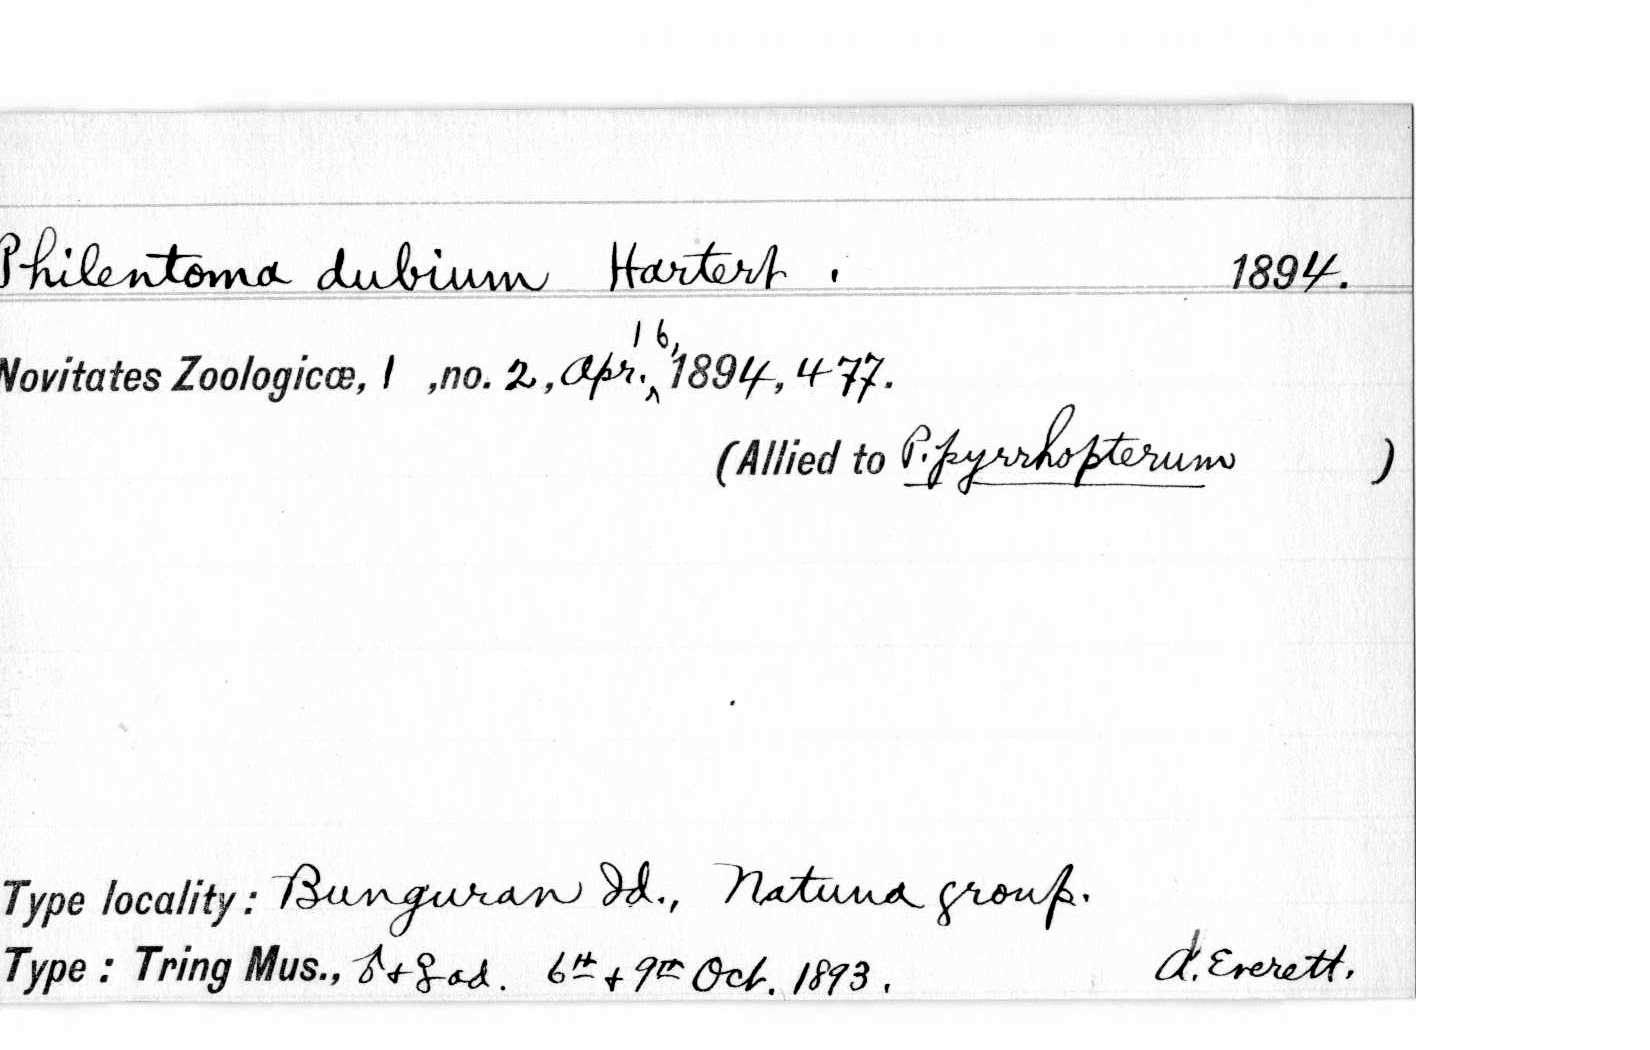 Philentoma dubium Hartert. 1894.
Novitates Zoologicæ, 1 ,no. 2, Apr. 16, 1894, 477.
(Allied to P. pyrrhopterum )
Type locality: Bunguran Id., Natuna group.
Type: Tring Mus., ♂ + ♀ ad. 6th + 9th Oct. 1893. A. Everett.